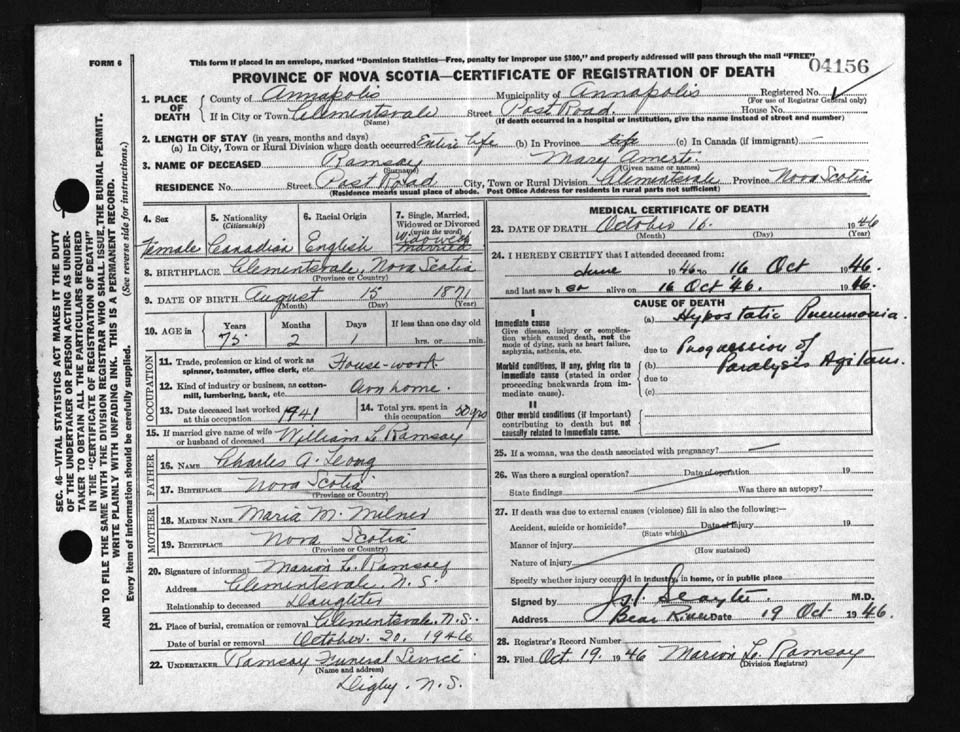 FORM 6
This form if placed in an envelope, marked "Dominion Statistics—Free, penalty for improper use $300," and properly addressed will pass through the mail "FREE"
04156
PROVINCE OF NOVA SCOTIA—CERTIFICATE OF REGISTRATION OF DEATH
1. PLACE OF DEATH
County of Annapolis Municipality of Annapolis Registered No.
(For use of Registrar General only)
If in City or Town Clementsvale Street Post Road House No.
(Name) (If death occurred in a hospital or institution, give the name instead of street and number)
2. LENGTH OF STAY (in years, months and days)
(a) In City, Town or Rural Division where death occurred Entire Life (b) In Province life (c) In Canada (if immigrant)
3. NAME OF DECEASED Ramsay Mary
(Surname) (Given name or names)
RESIDENCE No. Street Post Road City, Town or Rural Division Clementsvale Province Nova Scotia
(Residence means usual place of abode. Post Office Address for residents in rural parts not sufficient)
4. Sex Female
5. Nationality (Citizenship) Canadian
6. Racial Origin English
7. Single, Married, Widowed or Divorced (write the word) Widowed
8. BIRTHPLACE Clementsvale, Nova Scotia
(Province or Country)
9. DATE OF BIRTH August 15 1871
(Month) (Day) (Year)
10. AGE in Years Months Days If less than one day old
75 2 1 hrs. or min.
OCCUPATION
11. Trade, profession or kind of work as spinner, teamster, office clerk, etc. House-work
12. Kind of industry or business, as cotton-mill, lumbering, bank, etc. Own home.
13. Date deceased last worked at this occupation 1941
14. Total yrs. spent in this occupation 50 yrs
15. If married give name of wife or husband of deceased William L. Ramsay
FATHER
16. NAME Charles A. Long
17. BIRTHPLACE Nova Scotia
(Province or Country)
MOTHER
18. MAIDEN NAME Maria M. Milner
19. BIRTHPLACE Nova Scotia
(Province or Country)
20. Signature of informant Marion L. Ramsay
Address Clementsvale, N.S.
Relationship to deceased Daughter
21. Place of burial, cremation or removal Clementsvale, N.S.
Date of burial or removal October. 20, 1946
22. UNDERTAKER Ramsay Funeral Service
(Name and address)
Digby. N.S.
MEDICAL CERTIFICATE OF DEATH
23. DATE OF DEATH October 16. 1946
(Month) (Day) (Year)
24. I HEREBY CERTIFY that I attended deceased from:
June 1946 to 16 Oct 1946.
and last saw her alive on 16 Oct '46. 1946.
CAUSE OF DEATH
I
Immediate cause
Give disease, injury or complication which caused death, not the mode of dying, such as heart failure, asphyxia, asthenia, etc.
(a) Hypostatic Pneumonia.
due to Progression of
Morbid conditions, if any, giving rise to immediate cause (stated in order proceeding backwards from immediate cause).
(b) Paralysis Agitans.
due to
(c)
II
Other morbid conditions (if important) contributing to death but not causally related to immediate cause.
25. If a woman, was the death associated with pregnancy?
26. Was there a surgical operation? Date of operation 19
State findings Was there an autopsy?
27. If death was due to external causes (violence) fill in also the following:—
Accident, suicide or homicide? Date of injury 19
(State which)
Manner of injury
(How sustained)
Nature of injury
Specify whether injury occurred in industry, in home, or in public place
Signed by M.D.
Address Bear River Date 19 Oct 1946.
28. Registrar's Record Number
29. Filed Oct 19. 1946 Marion L. Ramsay
(Division Registrar)
SEC. 46—VITAL STATISTICS ACT MAKES IT THE DUTY
OF THE UNDERTAKER OR PERSON ACTING AS UNDER-
TAKER TO OBTAIN ALL THE PARTICULARS REQUIRED
IN THE "CERTIFICATE OF REGISTRATION OF DEATH"
AND TO FILE THE SAME WITH THE DIVISION REGISTRAR WHO SHALL ISSUE THE BURIAL PERMIT.
WRITE PLAINLY WITH UNFADING INK. THIS IS A PERMANENT RECORD.
Every item of information should be carefully supplied. (See reverse side for instructions.)